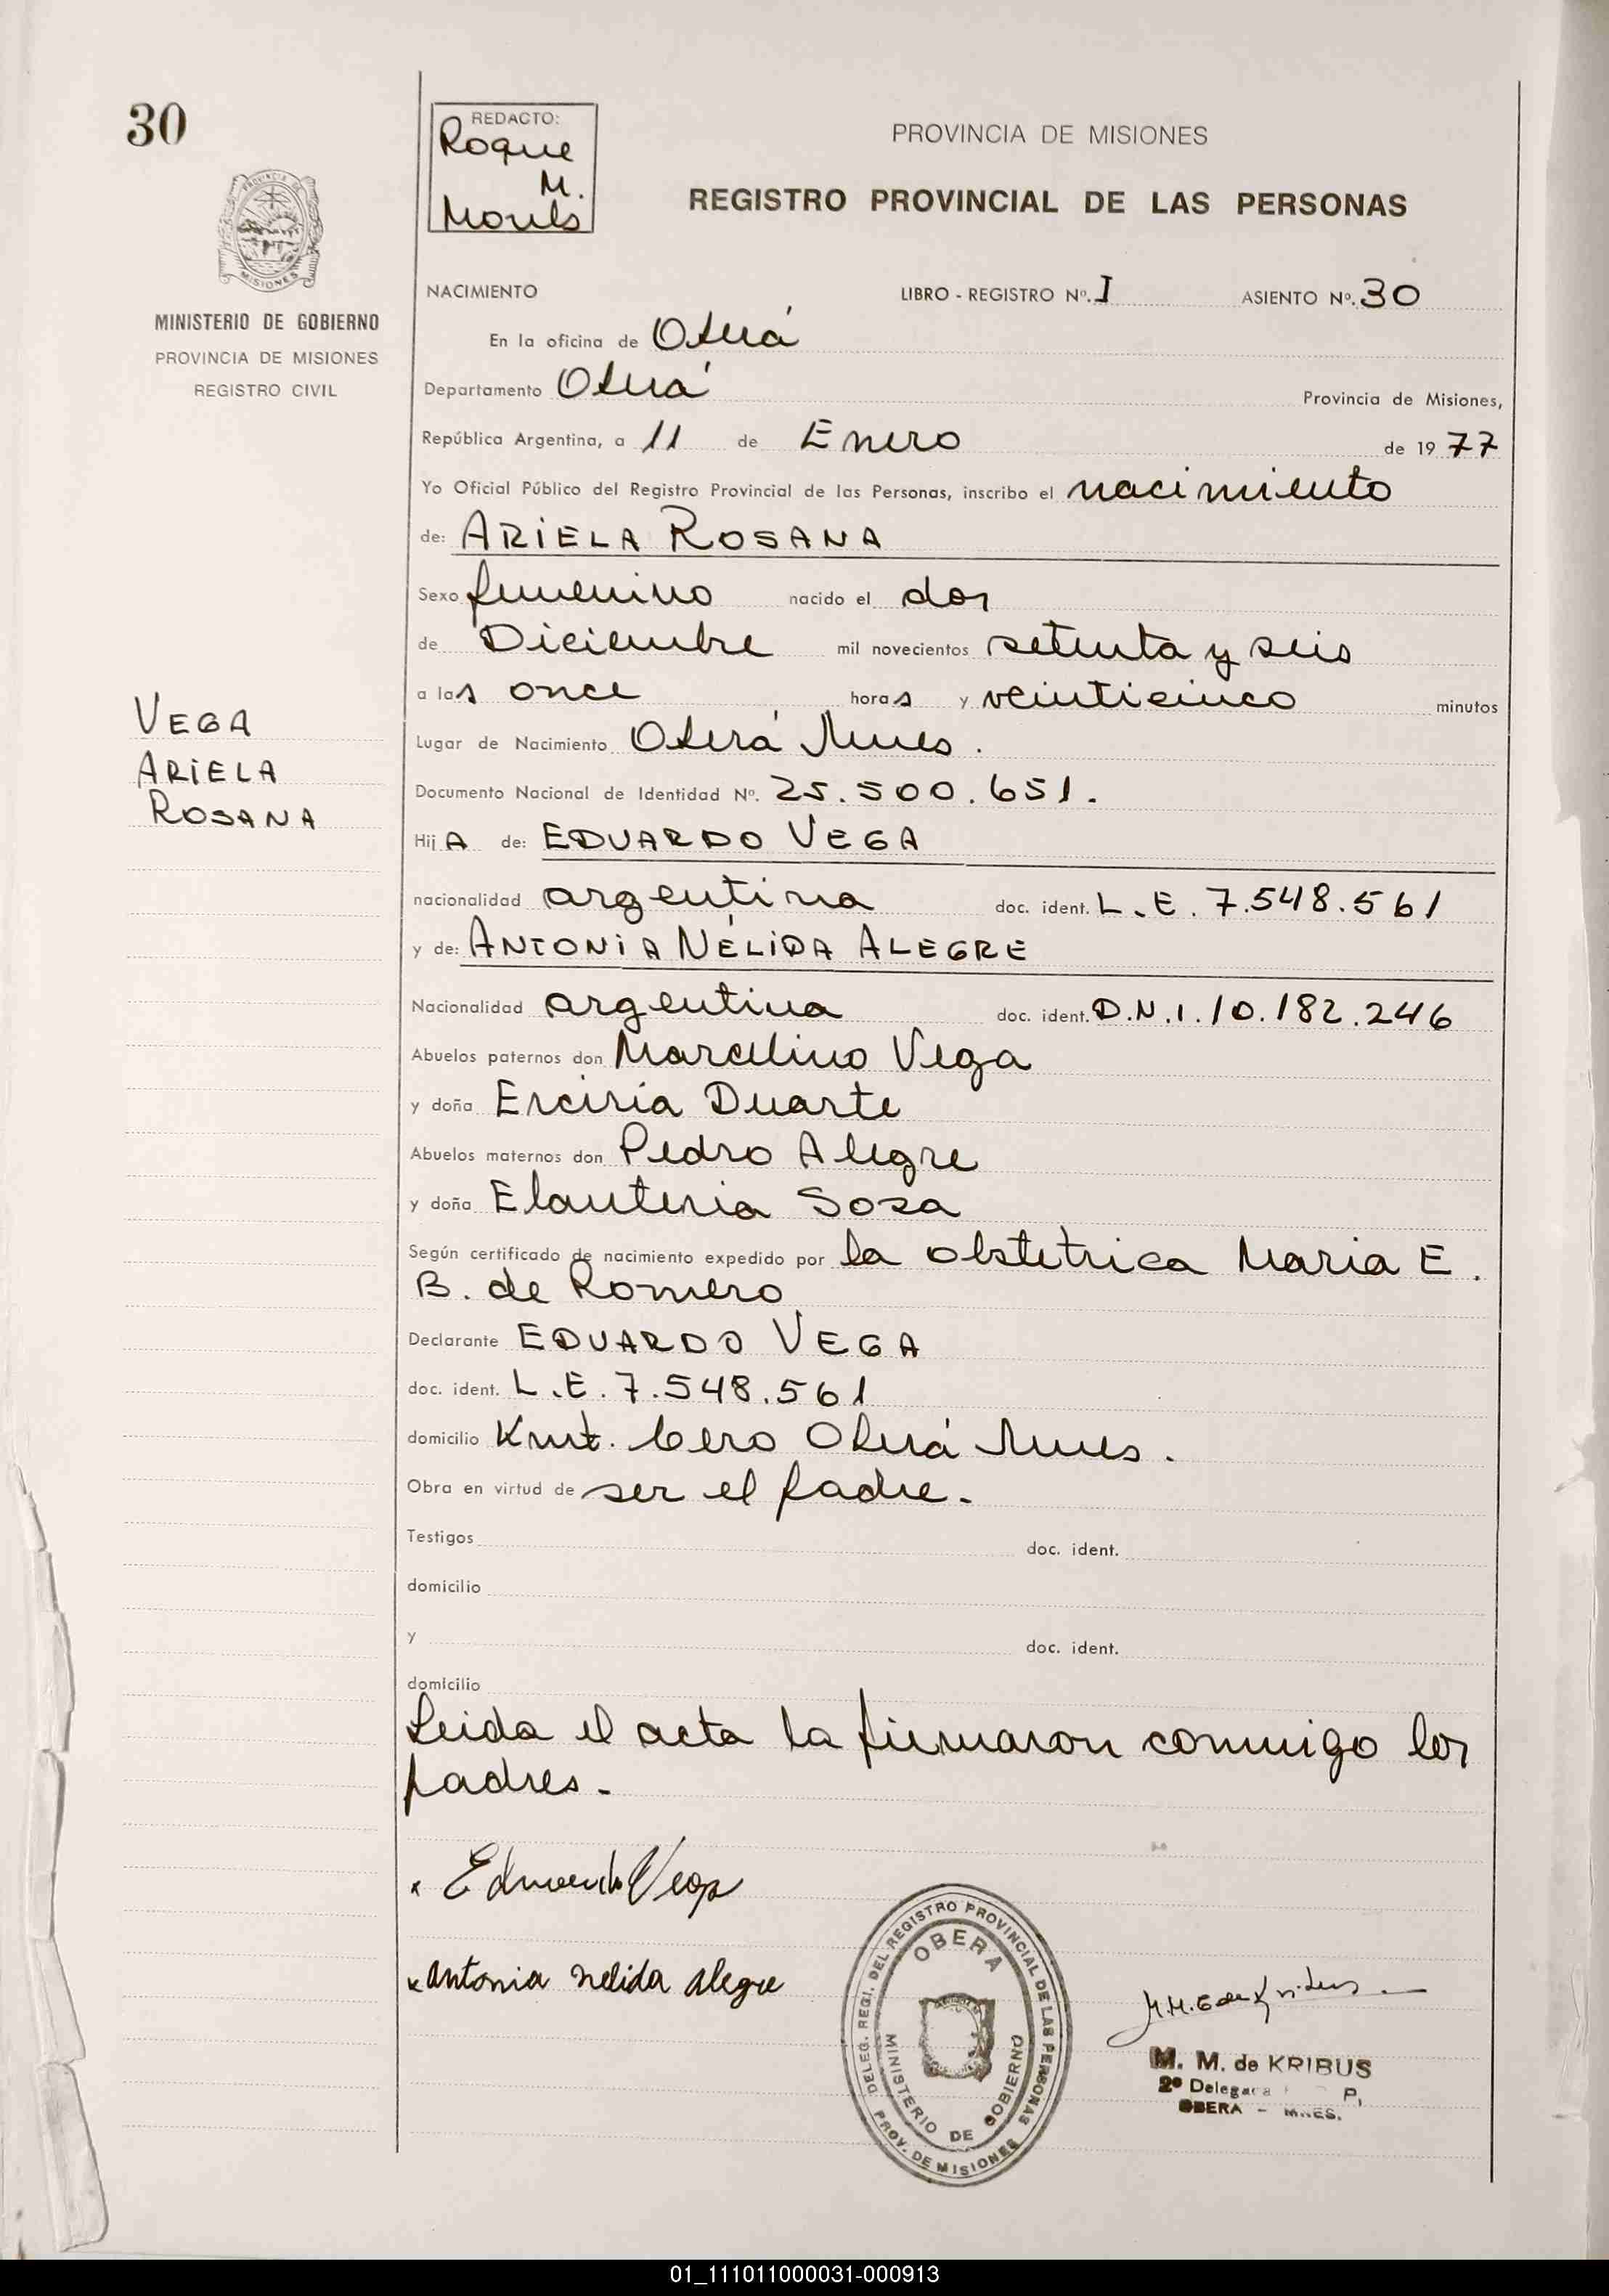 30
REDACTO:
Roque
M.
PROVINCIA DE MISIONES
REGISTRO PROVINCIAL DE LAS PERSONAS
PROVINCIA DE
MISIONES
MINISTERIO DE GOBIERNO
PROVINCIA DE MISIONES
REGISTRO CIVIL
NACIMIENTO LIBRO - REGISTRO Nº. I ASIENTO Nº. 30
En la oficina de Oberá
Departamento Oberá Provincia de Misiones,
República Argentina, a 11 de Enero de 1977
Yo Oficial Público del Registro Provincial de las Personas, inscribo el nacimiento
de: ARIELA ROSANA
Sexo femenino nacido el dos
de Diciembre mil novecientos setenta y seis
a las once horas y veinticinco minutos
VEGA
ARIELA
ROSANA
Lugar de Nacimiento Oberá Mnes.
Documento Nacional de Identidad Nº. 25.500.651.
Hija de: EDUARDO VEGA
nacionalidad argentina doc. ident. L.E. 7.548.561
y de: ANTONIA NÉLIDA ALEGRE
Nacionalidad argentina doc. ident. D.N.I. 10.182.246
Abuelos paternos don Marcelino Vega
y doña Erciria Duarte
Abuelos maternos don Pedro Alegre
y doña Elauteria Sosa
Según certificado de nacimiento expedido por la obstetrica Maria E.
B. de Romero
Declarante EDUARDO VEGA
doc. ident. L.E. 7.548.561
domicilio Kmt. Cero Oberá Mnes.
Obra en virtud de ser el padre.
Testigos doc. ident.
domicilio
y doc. ident.
domicilio
Leida el acta la firmaron conmigo los
padres.
x Eduardo Vega
x antonia nelida alegre
DELEG. REGI. DEL REGISTRO PROVINCIAL DE LAS PERSONAS
OBERA
MINISTERIO DE GOBIERNO
PROV. DE MISIONES
M. M. de KRIBUS
2º Delegada P,
OBERA - MNES.
01_111011000031-000913